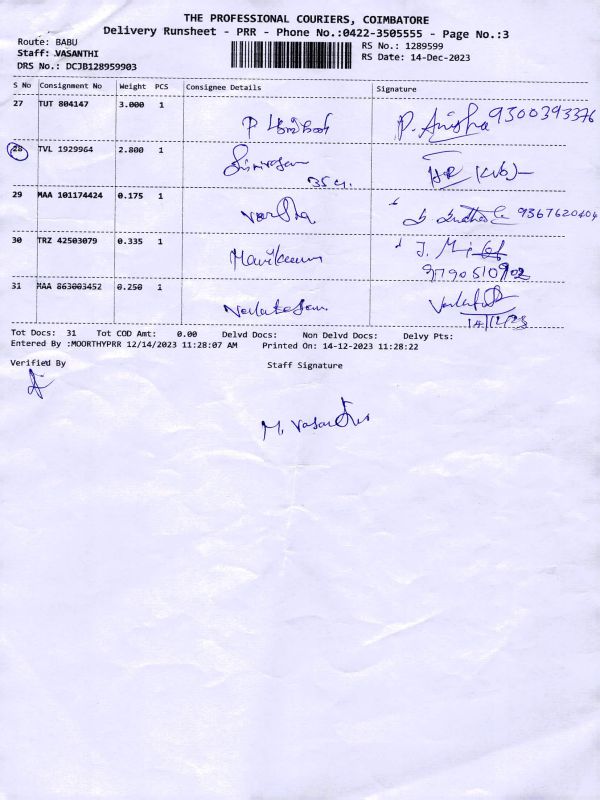 THE PROFESSIONAL COURIERS, COIMBATORE
Delivery Runsheet - PRR - Phone No.:0422-3505555 - Page No.:3
Route: BABU
Staff: VASANTHI
DRS No.: DCJB128959903
RS No.: 1289599
RS Date: 14-Dec-2023
S No Consignment No Weight PCS Consignee Details Signature
27 TUT 804147 3.000 1
P. Anisha 9300393376
28 TVL 1929964 2.800 1
Srinivasan
29 MAA 101174424 0.175 1
Varsha 9367620404
30 TRZ 42503079 0.335 1
Manikumar J.
9790510902
31 MAA 863003452 0.250 1
Venkatesan
14/12/23
Tot Docs: 31 Tot COD Amt: 0.00 Delvd Docs: Non Delvd Docs: Delvy Pts:
Entered By :MOORTHYPRR 12/14/2023 11:28:07 AM Printed On: 14-12-2023 11:28:22
Verified By Staff Signature
M. Vasanthi